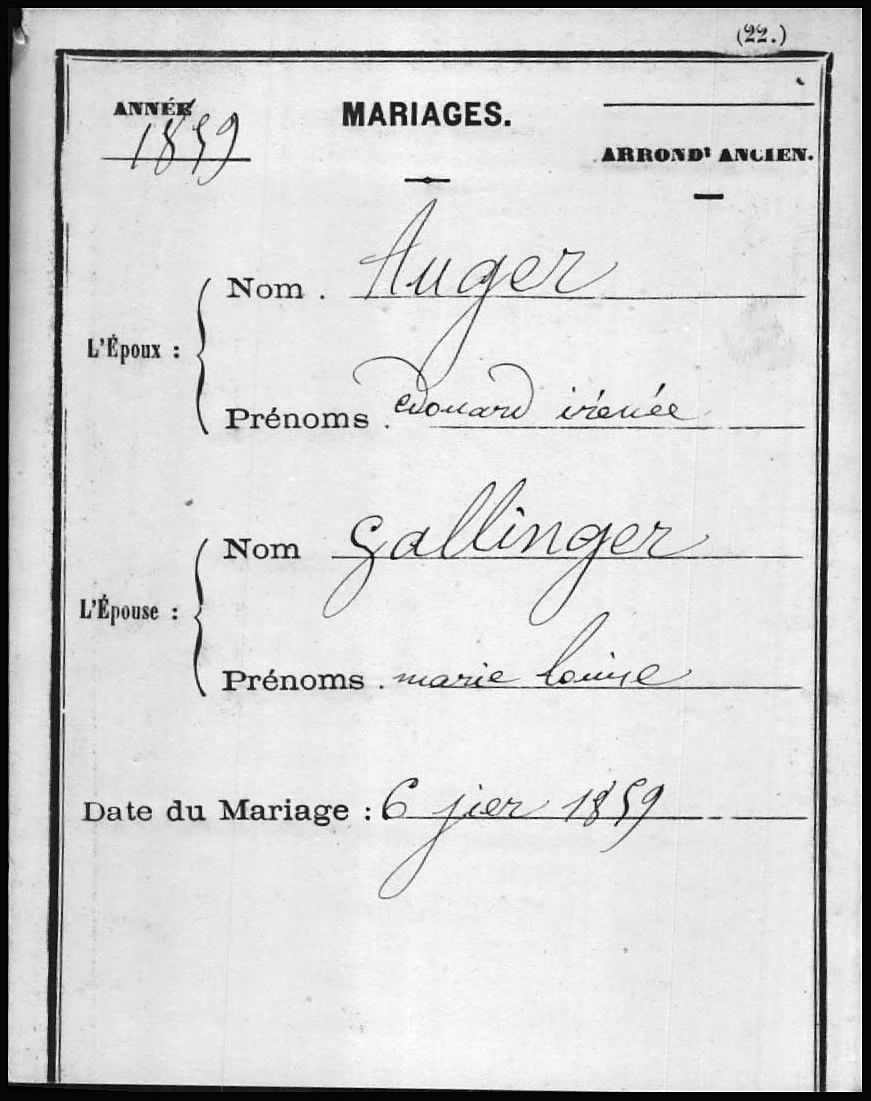 (22.)
ANNÉE
1859
MARIAGES.
ARRONDt ANCIEN.
L'Époux :
Nom . Auger
Prénoms . edouard irénée
L'Épouse :
Nom Gallinger
Prénoms . marie louise
Date du Mariage : 6 jier 1859